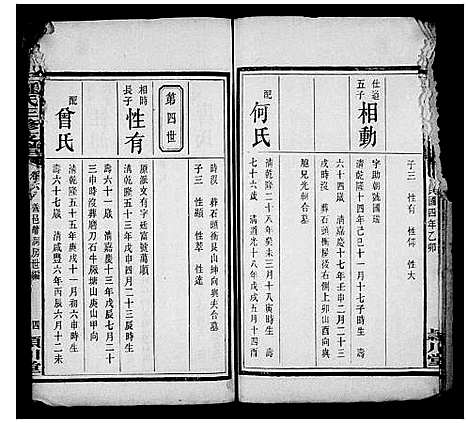 民國四年乙卯
潁川堂
仕道
五子
相動
字助朝號國瑞
清乾隆十四年己巳十一月初六子時生 壽
六十四歲 清嘉慶十七年壬申二月二十二
戌時沒 葬石頭衝屋後右側上卯山酉向與
旭兒光桐合墓
配
何氏
清乾隆二十八年癸未三月十八寅時生 壽
七十六歲 清道光十八年戊戌五月十四酉
子三 性有 性仰 性大
時沒 葬石頭衝艮山坤向與夫合墓
子三 性顯 性萃 性達
第四世
相時
長子
性有
原派文有字廷富號萬順
清乾隆五十三年戊申四月二十三辰時生
壽六十一歲 清嘉慶十三年戊辰七月二十
三卯時沒葬磨刀石牛厰塘山庚山甲向
配
曾氏
清乾隆五十五年庚戌十一月初六申時生
壽六十七歲 清咸豐六年丙辰六月十二未
四
潁川堂